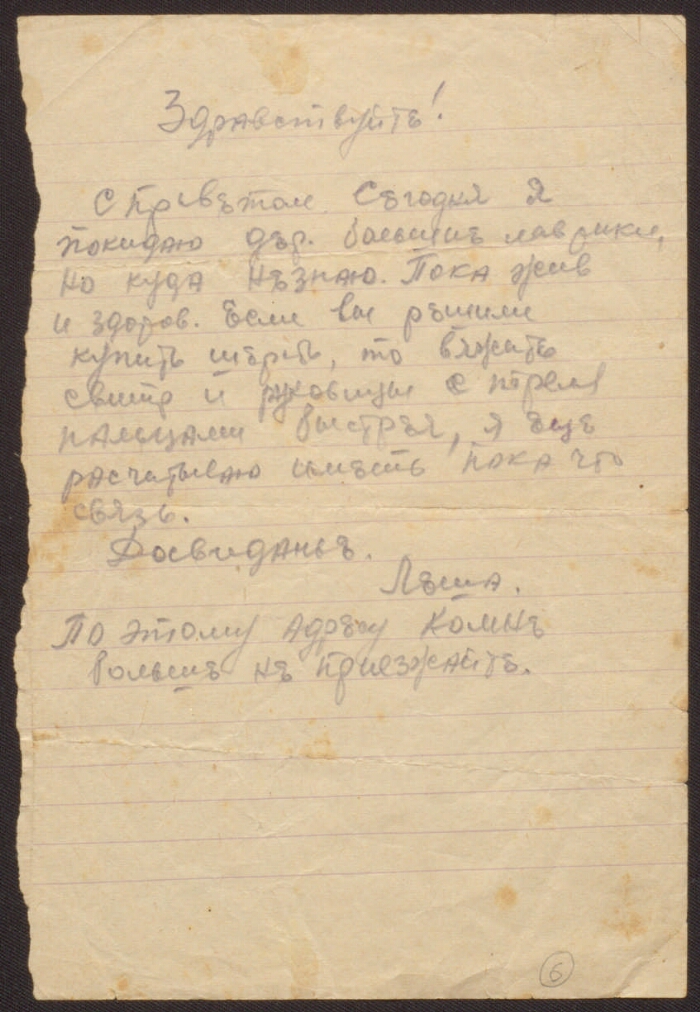 Здравствуйте!
С приветом Сегодня я
покидаю дер. большие лаврики,
но куда незнаю. Пока жив
и здоров. Если вы решили
купить шерсть, то вяжите
свитр и руковицы с
пальцами быстрея, я еще
расчитываю иметь пока что
связь.
Досвиданье.
Леша.
По этому адресу комне
больше не приезжайте.
6